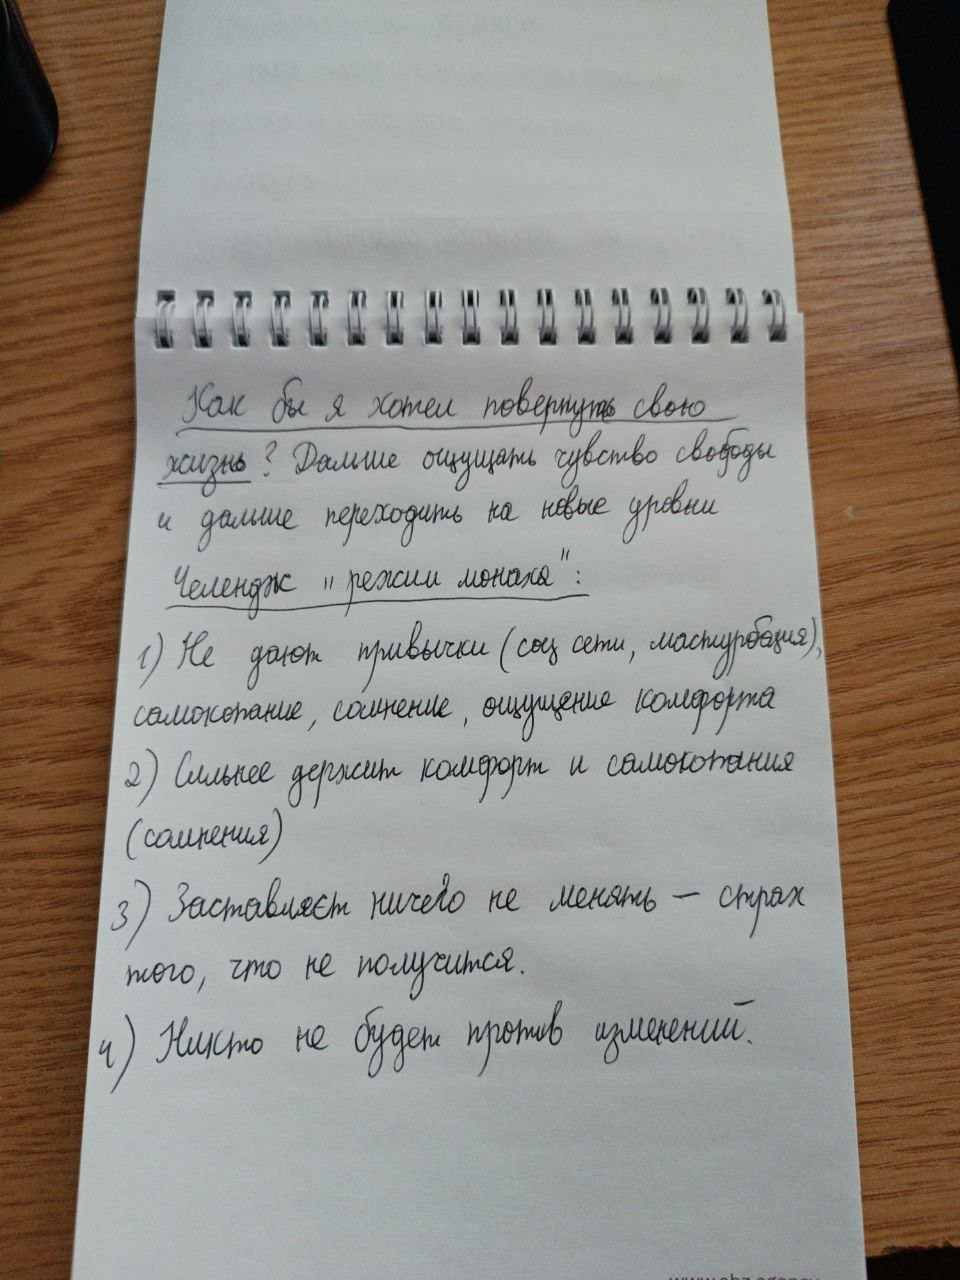 Как бы я хотел повернуть свою
жизнь? Дальше ощущать чувство свободы
и дальше переходить на новые уровни
Челендж "режим монаха":
1) Не дают привычки (соц сети, мастурбация),
самокопание, сомнение, ощущение комфорта
2) Сильнее держит комфорт и самокопания
(сомнения)
3) Заставляєт ничего не менять – страх
того, что не получится.
4) Никто не будет против изменений.